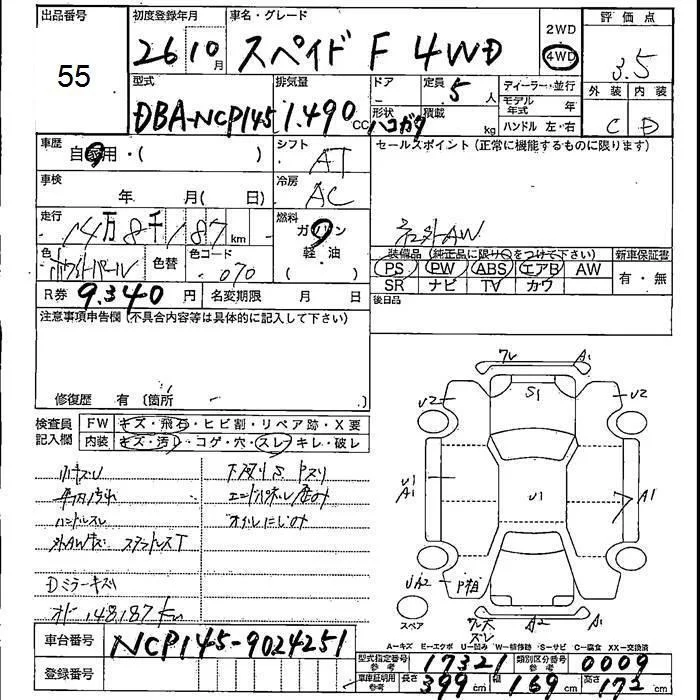 出品番号
55
初度登録年月
26年10月
車名・グレード
スペイド F 4WD
2WD
4WD
評価点
3.5
外装 内装
C D
型式
DBA-NCP145
排気量
1.490 CC
ドア
定員 5 人
形状 ハコガタ
積載 kg
ディーラー・並行
モデル年式 年
ハンドル 左・右
車歴
自家用・( )
シフト
AT
セールスポイント(正常に機能するものに限ります)
車検
年 月( 日)
冷房
AC
社外AW
走行
14万8千187km
燃料
ガソリン
軽・油
( )
色
ホワイトパール
色替
色コード
070
装備品(純正品に限り○をつけて下さい)
新車保証書
PS PW ABS エアB AW
SR ナビ TV カワ
有・無
R券 9.340円
名変期限 月 日
後日品
注意事項申告欄(不具合内容等は具体的に記入して下さい)
修復歴 有(箇所
検査員記入欄
FW キズ・飛石・ヒビ割・リペア跡・X要
内装 キズ・汚レ・コゲ・穴・スレ・キレ・破レ
ハンドルスレ
外AWキズ スタッドレスT
Dミラーキズ
オド 148,187km
下廻りS Pズリ
オイルにじみ
A1
S1
U2
U2
U1
A1
U1
A1
UA2
A2
A1
スペア
車台番号
NCP145-9024251
登録番号
A―キズ E―エクボ U―凹み W―補修跡 S―サビ C―腐食 XX―交換済
型式指定番号 参考 17321
類別区分番号 参考 0009
車庫証明用 参考 長さ 399 cm 幅 169 cm 高さ 172 cm